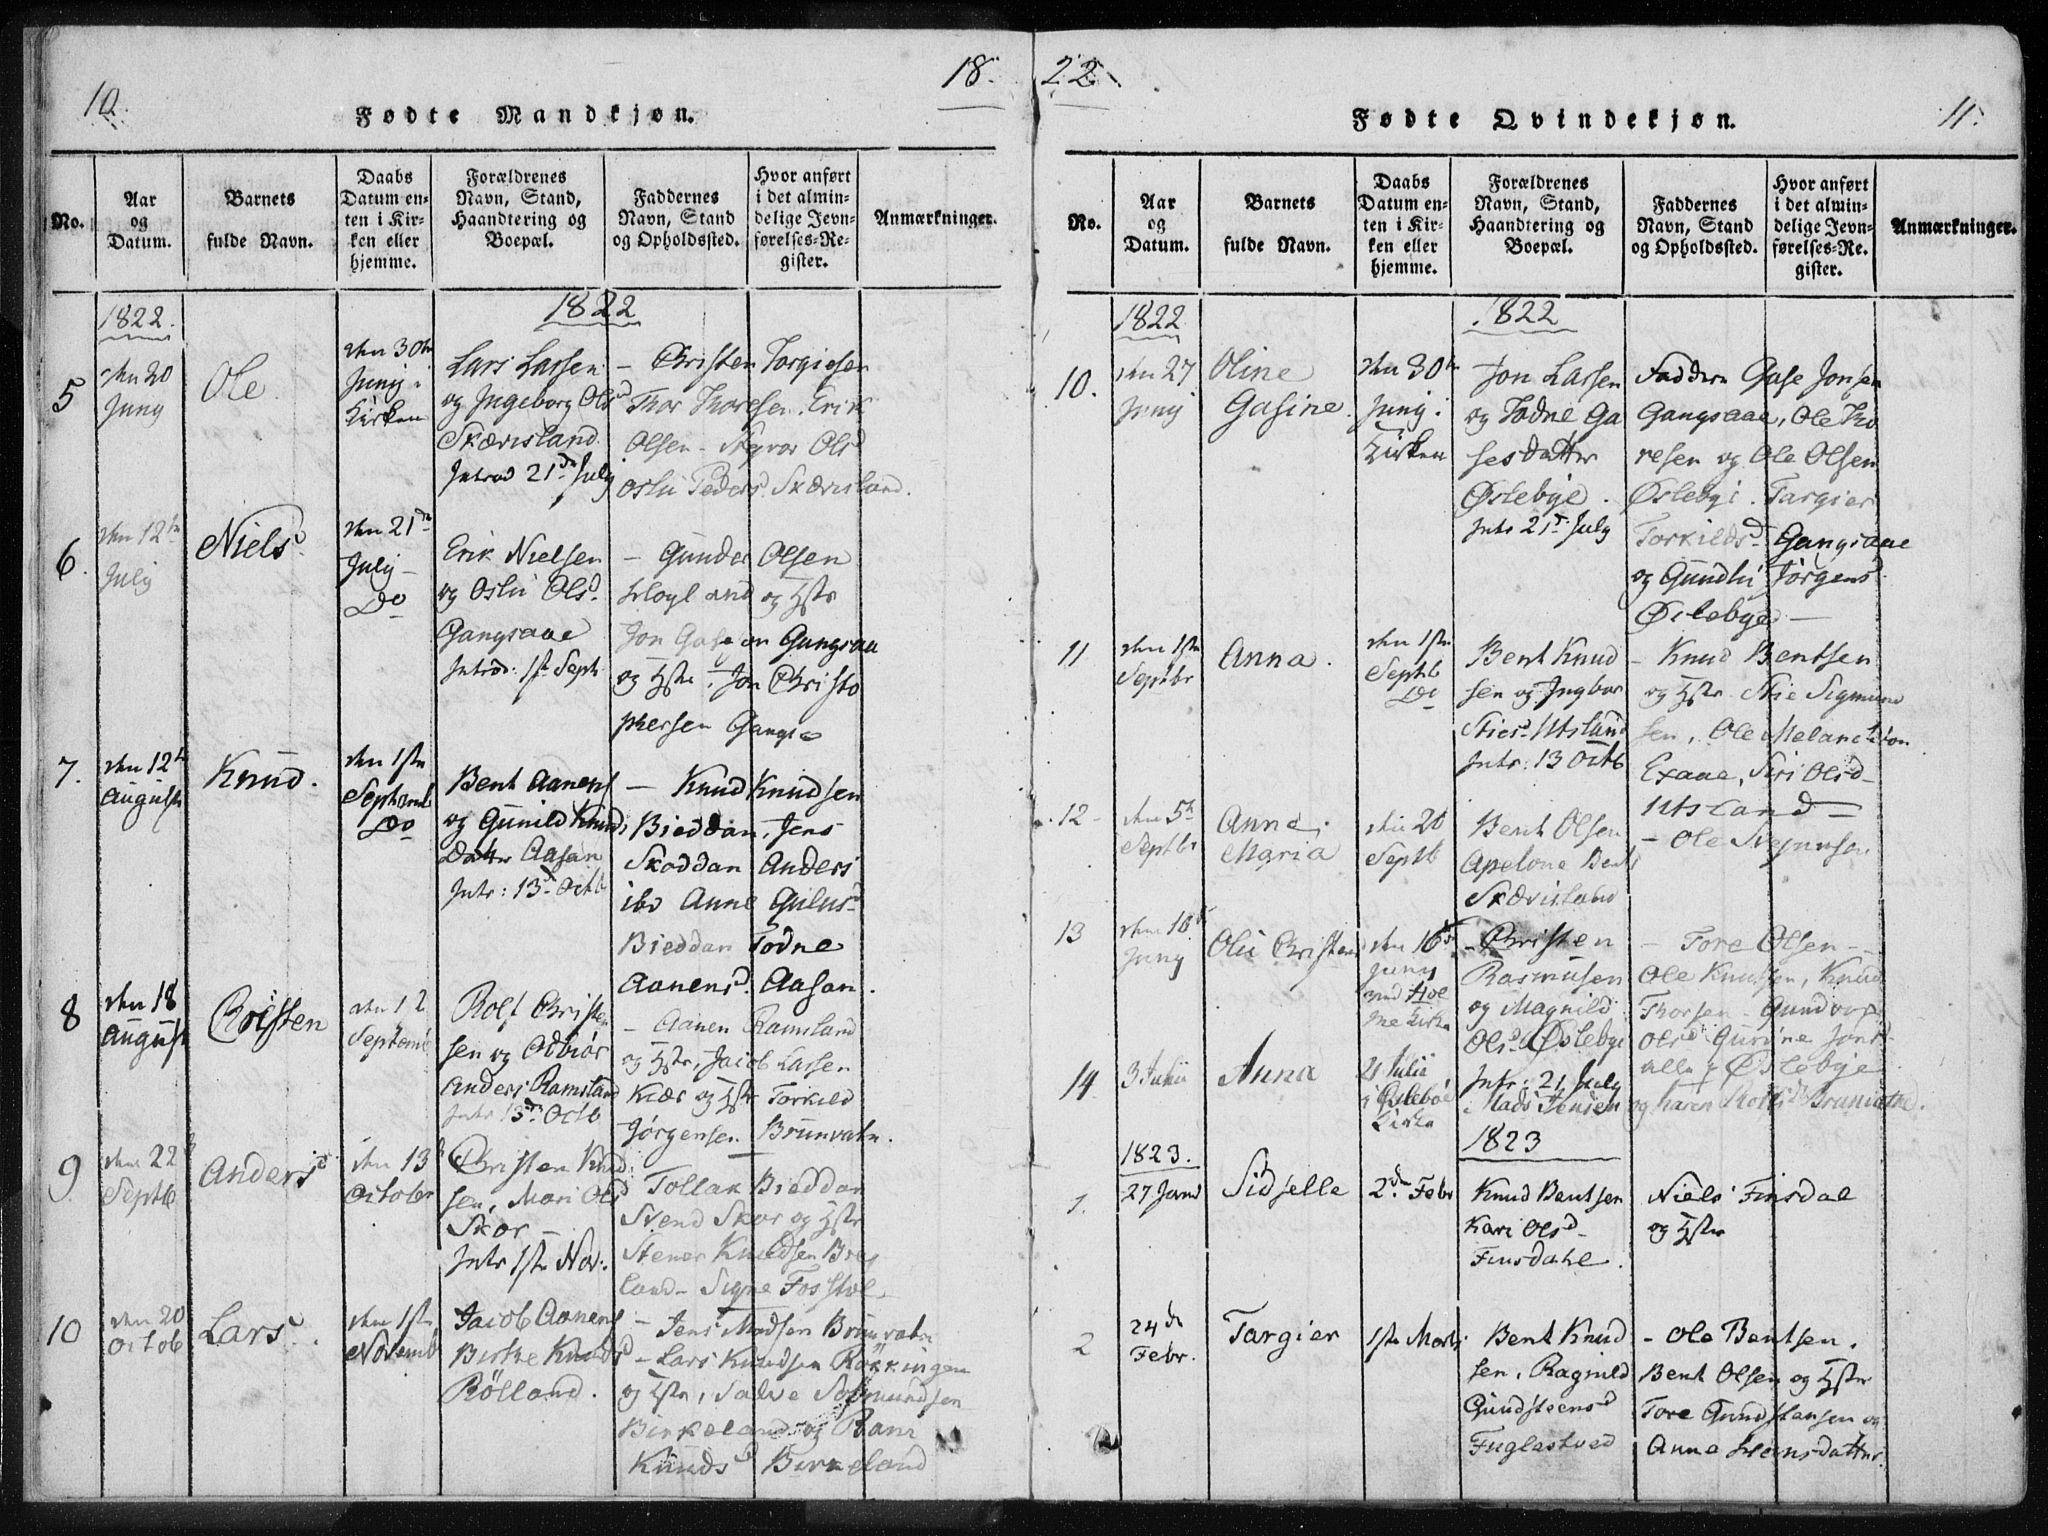 10.
18.
Fødte Mandkjøn.
No.
Aar
og
Datum.
Barnets
fulde Navn.
Daabs
Datum en=
ten i Kir=
ken eller
hjemme.
Forældrenes
Navn, Stand,
Haandtering og
Boepæl.
Faddernes
Navn, Stand
og Opholdssted.
Hvor anført
i det almin=
delige Jevn=
førelses=Re=
gister.
Anmærkninger.
1822.
1822
5
den 20
Juny
Ole
den 30te
Junij i
Kirken
Lars Larsen
og Ingeborg Olsd
Skærisland
Introd 21de July
— Christen Torgiesen
Thor Thoresen. Erik
Olsen
Oslu Peders. Skærisland.
6.
den 12te
July
Niels
den 21de
Julij —
Do
Erik Nielsen
og Oslu Olsd.
Gangsaae
Introd: 1ste Septh
— Gunder Olsen
og Hstr
Jon Gasesen Gangsaa
og Hstr, Jon Christo
phersen Gangs
7.
den 12te
August
Knud.
den 1ste
Septemb
Do
Bent Aanens
og Gunild Knuds
Datter Aasan
Intr: 13de Octb
— Knud Knudsen
Bieddan, Jens
Skoddan Anders
ibd Anne
Bieddan Todne
Aanensd. Aasan.
8
den 18
August
Christen
den 12
Septemb
Rolf Christen
sen og Odbiør
Anders Ramsland
Intr 13de Octb
— Aanen Ramsland
og Hstr, Jacob Larsen
Kiær og Hstr Torkild
Jørgensen Brunvatn.
9
den 22d
Septb
Anders
den 13d
October
Christen Knud
sen, Mari Olsd
Skor —
Intr 1ste Nov:
Tollak Bieddan
Svend Skor og Hstr
Stener Knudsen Breg
land — Signe Fosstøl
10
den 20
Octob
Lars.
den 1ste
Novemb
Jacob Aanens
Birthe Knudsd
Rölland.
— Jens Madsen Brunvatn
— Lars Knudsen Røkkingen
og Hstr, Salve Sigmundsen
Birkeland og Rani
Knudsd Birkeland
22.
11.
Fødte Qvindekjøn.
No.
Aar
og
Datum.
Barnets
fulde Navn.
Daabs
Datum en=
ten i Kir=
ken eller
hjemme.
Forældrenes
Navn, Stand,
Haandtering og
Boepæl.
Faddernes
Navn, Stand
og Opholdssted.
Hvor anført
i det almin=
delige Jevn=
førelses=Re=
gister.
Anmærkninger.
1822
1822
10.
den 27
Junij
Oline
Gasine.
den 30te
Junij i
Kirken
Jon Larsen
og Todne Ga
sesdatter
Øslebye.
Intr 21de July
Faddere Gase Jonsen
Gangsaae, Ole Tho
resen og Ole Olsen
Øslebye. Targier
Torkildsd. Gangsaae
og Gundlu Jörgensd.
Øslebye —
11
den 1ste
Septbr
Anna.
den 1ste
Septb
Do
Bent Knud
sen og Ingbor
Sticsd Utsland
Intr: 13 Octb
— Knud Bentsen
og Hstr. Stie Sigmund
sen, Ole Melanchton
Exaae, Siri Olsd —
Utsland —
12
den 5te
Septbr
Anne
Maria
Septb
Bent Olsen
Apelone Bents
Skærisland
— Ole
13
den 10de
Juny
Olu Christensd
den 16de
Juny
ved Hol
me Kirke
— Christen
Rasmusen
og Magnild
Olsd Øslebye
Intr: 21 July
— Tore Olsen —
Ole Knutsen, Knud
Thorsen — Gundvor
Olsd Gurine Jonsd
alle p Øslebye
14
3 Junii
Anna
21 Julii
i Øsleböe
Kirke
Mads Jensen og Karen Rolfsd Brunvatne.
1823.
1823
1.
27 Janr
Sidselle
2de Febr
Knud Bentsen
Kari Olsd
Finsdahl.
Niels Finsdal
og Hstr
2
24de
Febr.
Targier
1ste Marts
Bent Knud
sen, Ragnild
Gundsteensd
Fuglestved
— Ole Bentsen.
Bent Olsen og Hstr
Tore Gundstensen og
Anne Steensdatter.